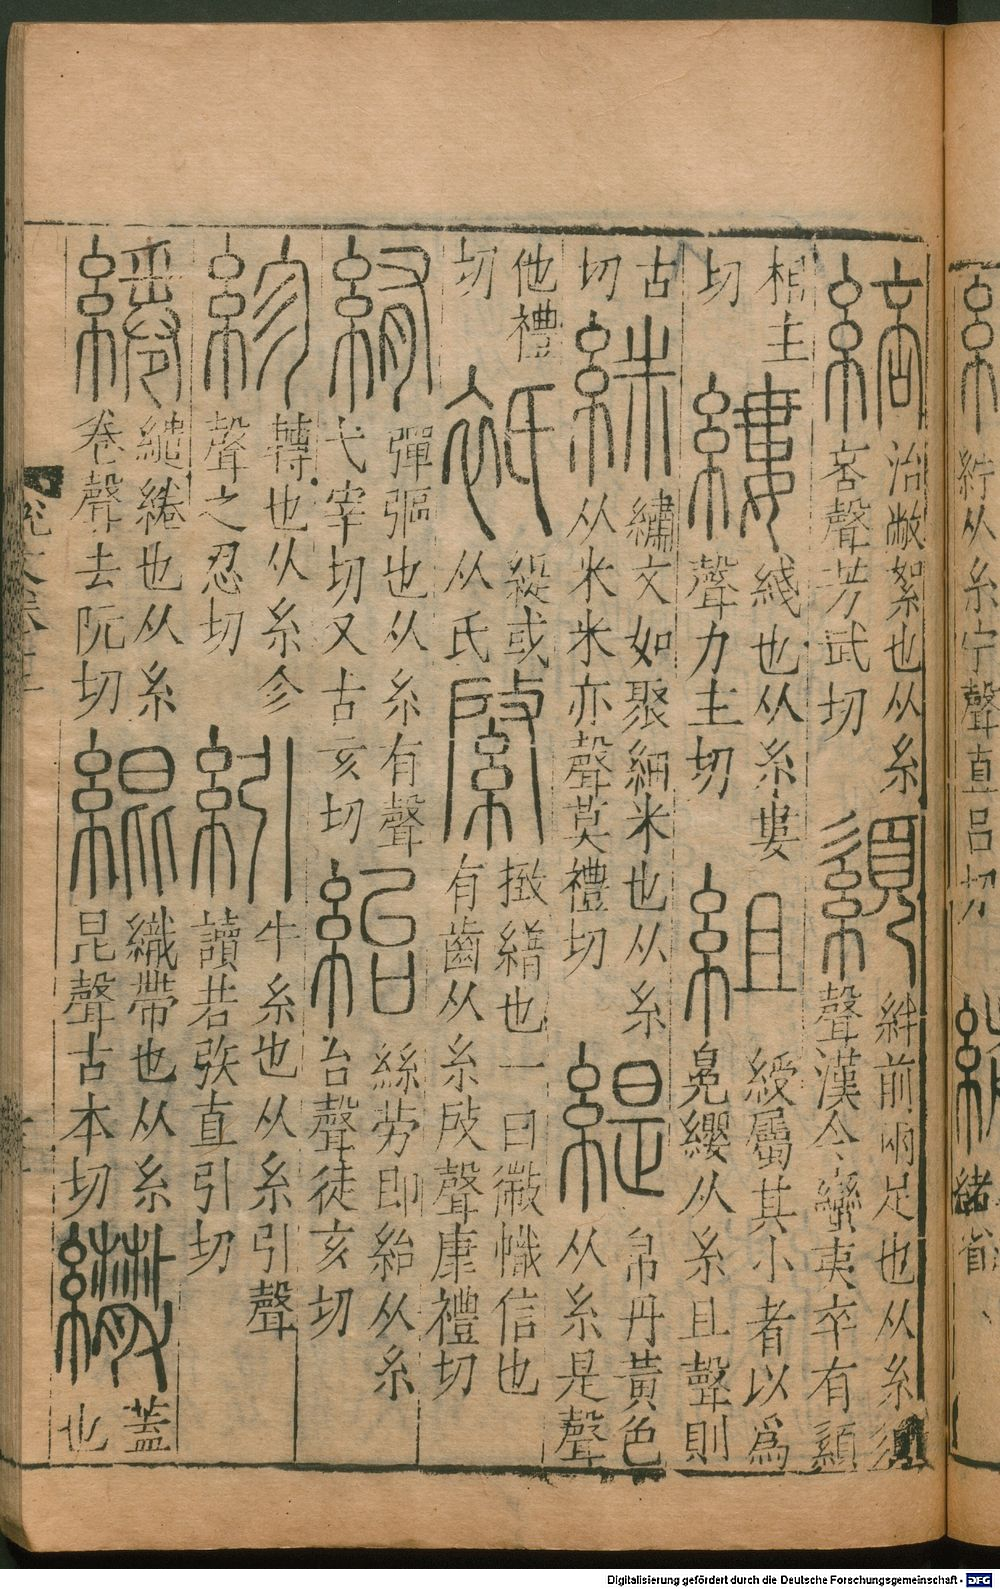 紵从糸宁聲直呂切
緒省
䋨治敝絮也从糸
咅聲芳武切
絆前兩足也从糸須
聲漢令蠻夷卒有
相主
切
縷綫也从糸婁
聲力主切
組綬屬其小者以爲
冕纓从糸且聲則
古
切
䋛繡文如聚細米也从糸
从米米亦聲莫禮切
緹帛丹黃色
从糸是聲
他禮
切
衹緹或
从氏
綮㨖繒也一曰徽幟信也
有齒从糸𢼄聲康禮切
䋖彈彄也从糸有聲
弋宰切又古亥切
紿絲勞即紿从糸
台聲徒亥切
紾轉也从糸㐱
聲之忍切
紖牛糸也从糸引聲
讀若㢮直引切
綣繾綣也从糸
卷聲去阮切
緄織帶也从糸
昆聲古本切
繖蓋
也
Digitalisierung gefördert durch die Deutsche Forschungsgemeinschaft - DFG